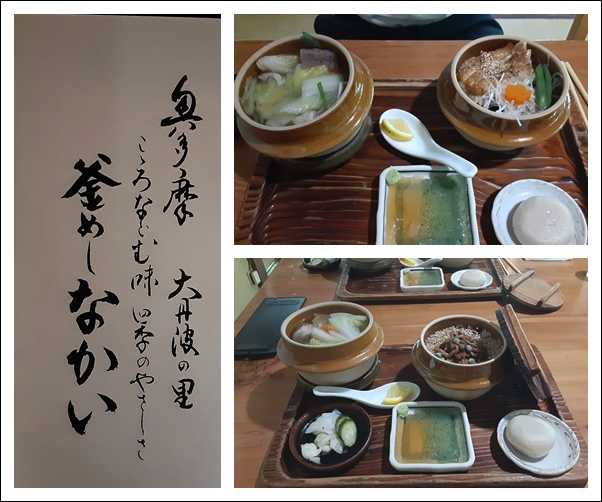 奥多摩 大丹波の里
こゝろなごむ味 四季のやさしさ
釜めしなかい